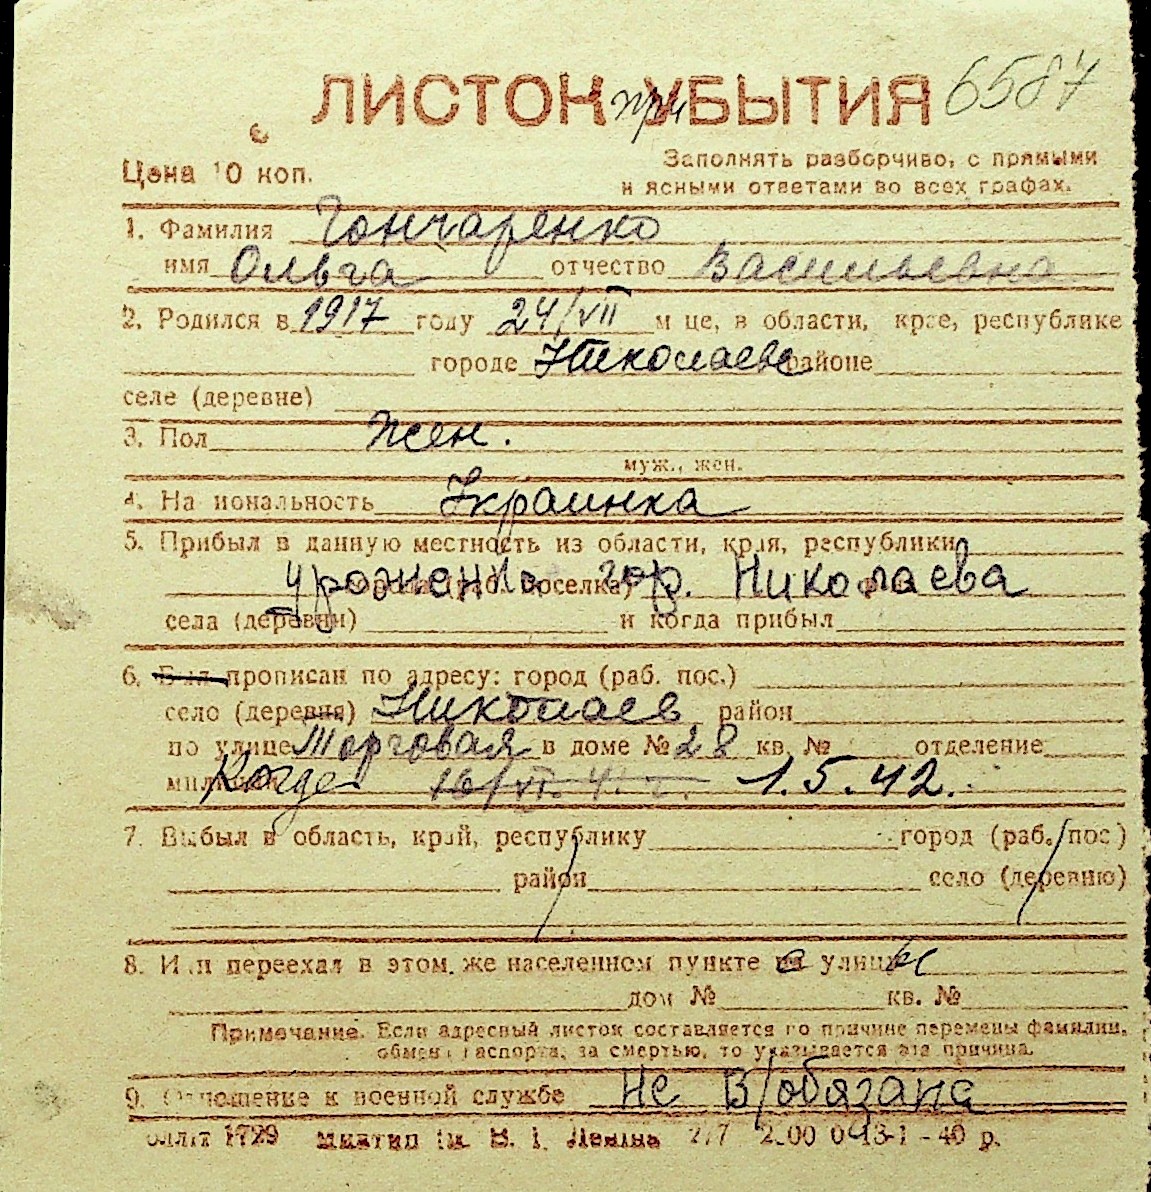 ЛИСТОК при УБЫТИЯ 6587
Цена 10 коп.
Заполнять разборчиво, с прямыми
и ясными ответами во всех графах.
1. Фамилия Гончаренко
имя Ольга отчество Васильевна
2. Родился в 1917 году 24/VII м це, в области, крае, республике
городе Николаеве районе
селе (деревне)
3. Пол Жен.
муж., жен.
4. На иональность Украинка
5. Прибыл в данную местность из области, края, республики
урожен гор. Николаева (раб. поселка)
села (деревни) и когда прибыл
6. Был прописан по адресу: город (раб. пос.)
село (деревня) Николаев район
по улице Торговая в доме № 28 кв. № отделение
милиции Когда 16/VI. 41 г. 1.5.42.
7. Выбыл в область, край, республику город (раб. пос)
район село (деревню)
8. Или переехал в этом же населенном пункте с улицы
дом № кв. №
Примечание. Если адресный листок составляется по причине перемены фамилии,
обмена паспорта, за смертью, то указывается эта причина.
9. Отношение к военной службе Не в/обязана
1729 Миятип им. В. І. Леніна 2.00 0 - 40 р.